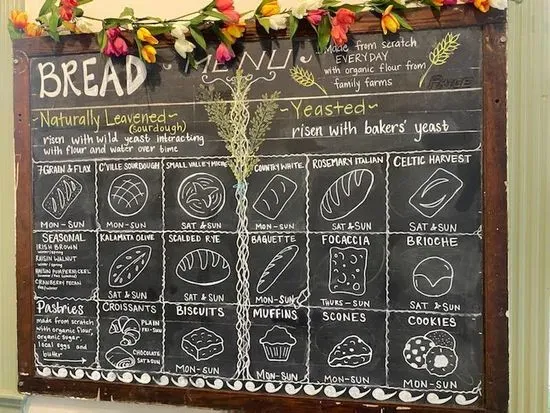 BREAD
MENU
Made from scratch
EVERYDAY
with organic flour from
family farms
~Naturally Leavened~
(sourdough)
risen with wild yeast interacting
with flour and water over time
~Yeasted~
risen with bakers' yeast
7 GRAIN & FLAX
MON-SUN
C'VILLE SOURDOUGH
MON-SUN
SMALL VALLEY MICHE
SAT & SUN
COUNTRY WHITE
MON-SUN
ROSEMARY ITALIAN
SAT & SUN
CELTIC HARVEST
SAT & SUN
SEASONAL
IRISH BROWN
winter/spring
RAISIN WALNUT
winter/spring
RAISIN PUMPERNICKEL
CRANBERRY PECAN
KALAMATA OLIVE
SAT & SUN
SEEDED RYE
SAT & SUN
BAGUETTE
MON-SUN
FOCACCIA
THURS-SUN
BRIOCHE
SAT & SUN
Pastries
made from scratch
with organic flour,
organic sugar,
local eggs and
butter
CROISSANTS
PLAIN
FRI-SUN
CHOCOLATE
SAT & SUN
BISCUITS
MON-SUN
MUFFINS
MON-SUN
SCONES
MON-SUN
COOKIES
MON-SUN